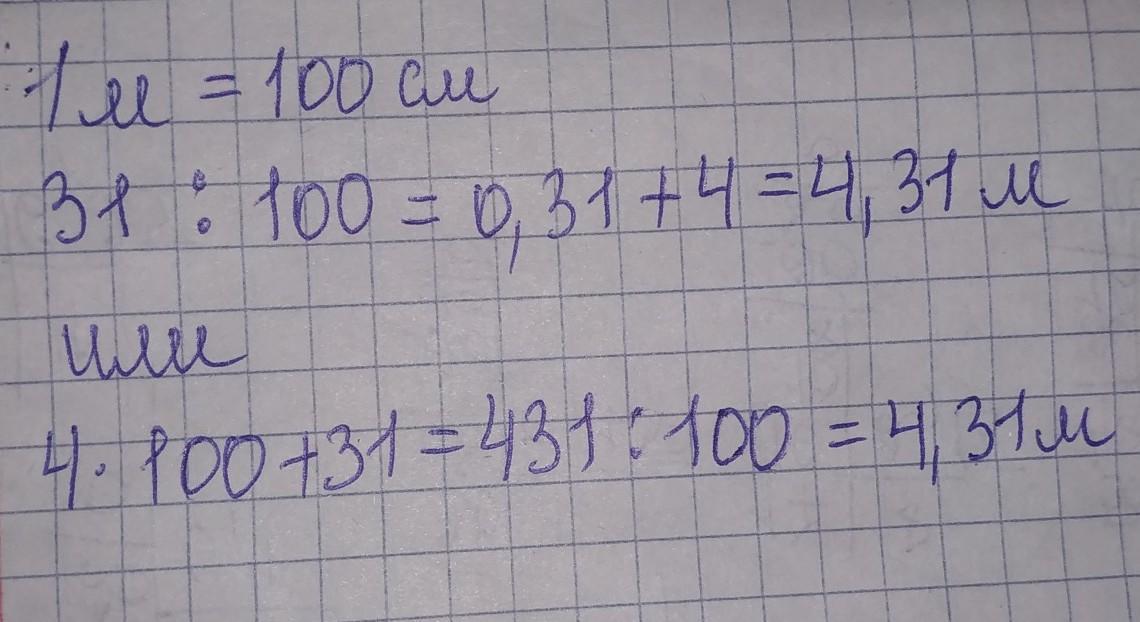 1м = 100 см
31 : 100 = 0,31 + 4 = 4,31 м
или
4 · 100 + 31 = 431 : 100 = 4,31м